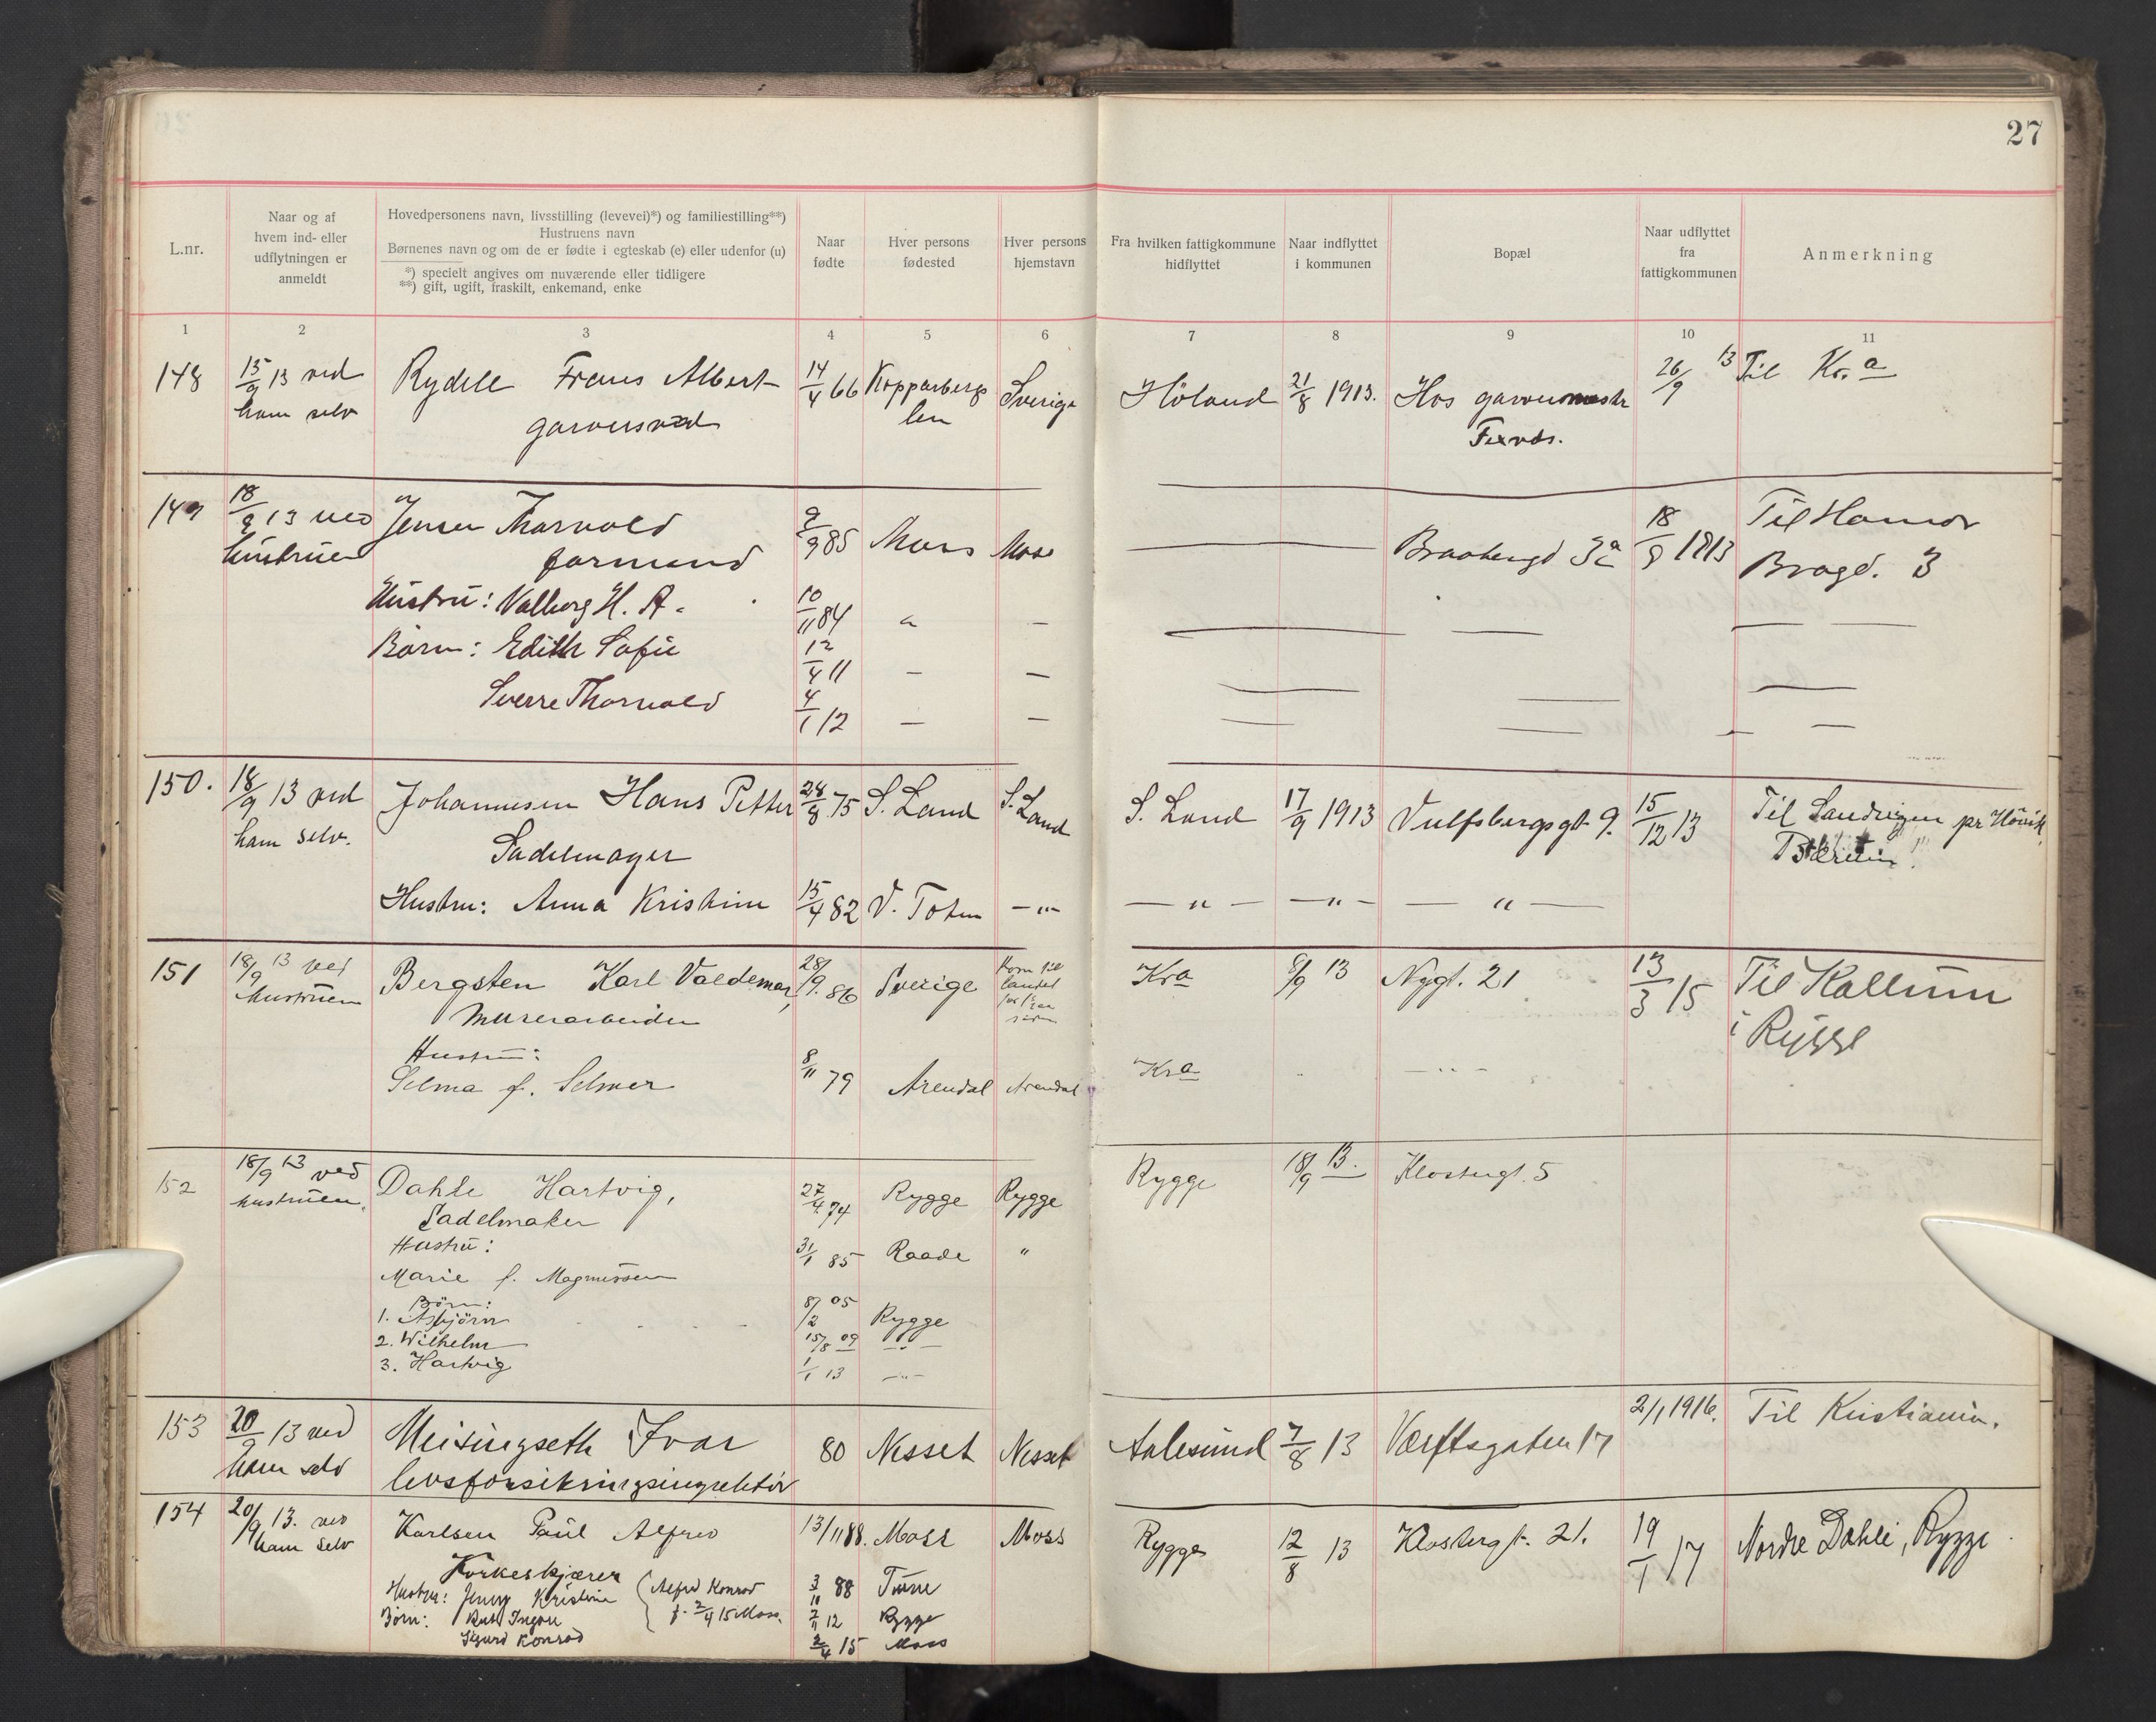 27
L.nr.
Naar og af
hvem ind- eller
udflytningen er
anmeldt
Hovedpersonens navn, livsstilling (levevei)*) og familiestilling**)
Hustruens navn
Børnenes navn og om de er fødte i egteskab (e) eller udenfor (u)
*) specielt angives om nuværende eller tidligere
**) gift, ugift, fraskilt, enkemand, enke
Naar
fødte
Hver persons
fødested
Hver persons
hjemstavn
Fra hvilken fattigkommune
hidflyttet
Naar indflyttet
i kommunen
Bopæl
Naar udflyttet
fra
fattigkommunen
Anmerkning
1 2 3 4 5 6 7 8 9 10 11
148 15/9 13 ved Frans Albert 14/4 66 Kopparbergs Sverige Höland 21/8 1913. Hos 26/9 13 Til Kr.a
ham selv garversvend len
149 18/9 13 ved Jensen Thorvald 9/9 85 Moss Moss 3a 18/9 1913 Til
hustruen formand 3
Hustru: Valborg H. A. 10/11 84 " —
Børn: Edith Sofie 12/4 11 — —
Sverre Thorvald 4/1 12 — —
150. 18/9 13 ved Johannesen Hans Petter 28/8 75 S. Land S. Land S. Land 17/9 1913 Vulfsbergsgt 9. 15/12 13 Til pr Hövik
ham selv. Sadelmager Bærum
Hustru: Anna Kristine 15/4 82 V. Toten — " — — " — — " — — " —
151 18/9 13 ved Bergsten Karl Valdemar, 28/9. 86 Sverige Kom til Kra 8/9 13 Nygt. 21 13/3 15 Til Kallum
hustruen Murerarbeider landet i Rygge
Hustru:
Selma f. Selmer 8/11 79 Arendal Arendal Kra " — " —
152 18/9 13 ved Dahle Hartvig, 27/4 74 Rygge Rygge Rygge 18/9 13. Klostergt. 5
hustruen. Sadelmaker
Hustru: 31/1 85 Raade "
Marie f. Magnussen
Børn:
1. Asbjörn 8/2 05 Rygge
2. Wilhelm 15/8 09 — " —
3. Hartvig 1/1 13 — " —
153 20/9 13 ved Meisingseth Ivar 80 Nesset Nesset Aalesund 7/8 13 Værftsgaten 17 2/1 1916. Til Kristiania.
ham selv livsforsikringsinspektör
154 20/9 13. ved Karlsen Paul Alfred 13/11 88. Moss Moss Rygge 12/8 13 Klostergt. 21. 19/1 17 Nordre Dahle, Rygge.
ham selv Korkeskjærer
Hustru: Jenny Kristine Alfred Konrad 3/10 88 Tune
Børn: Ruth f. 2/4 15 Moss. 12 Rygge
Sigurd Konrad 2/4 15 Moss